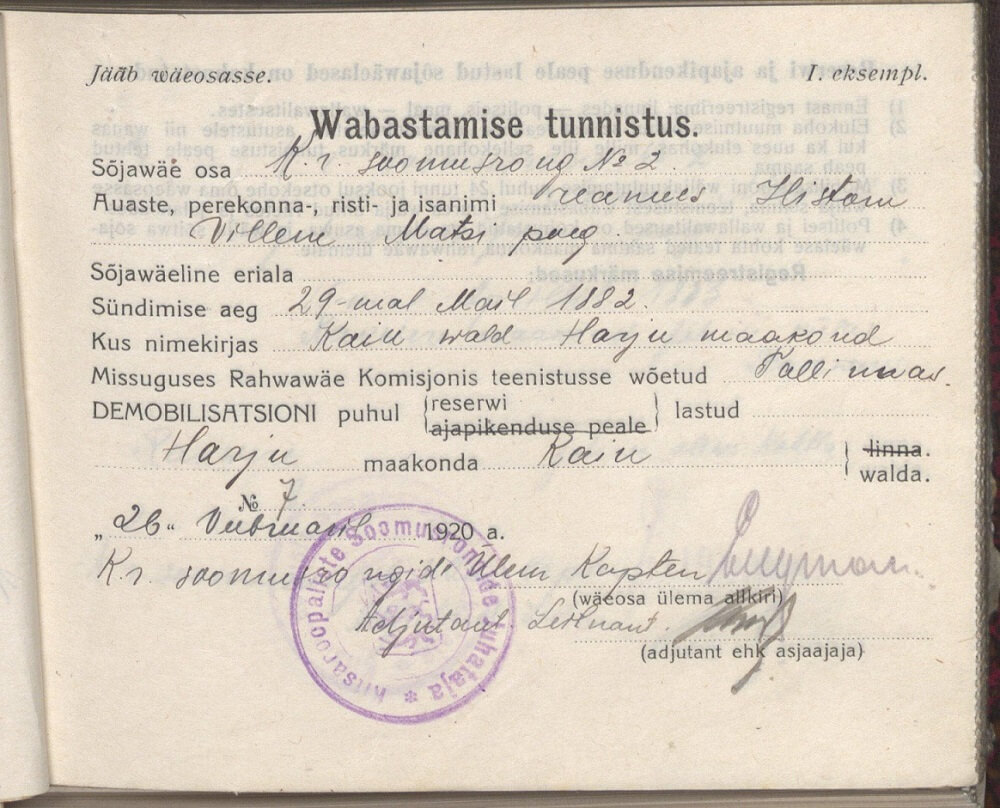 Jääb wäeosasse. I. eksempl.
Wabastamise tunnistus.
Sõjawäe osa K. r. soomusrong № 2
Auaste, perekonna-, risti- ja isanimi reamees
Villem Matsi poeg
Sõjawäeline eriala
Sündimise aeg 29-mal Mail 1882.
Kus nimekirjas wald Harju maakond
Missuguses Rahwawäe Komisjonis teenistusse wõetud Tallinnas.
DEMOBILISATSIONI puhul reserwi lastud
ajapikenduse peale
Harju maakonda linna.
walda.
№ 7.
„26“ Veebruaril 1920 a.
K. r. soomusrongide Ülem Kapten
(wäeosa ülema allkiri)
Adjutant Leitnant
(adjutant ehk asjaajaja)
Kitsaroopaliste Soomusrongide Juhataja